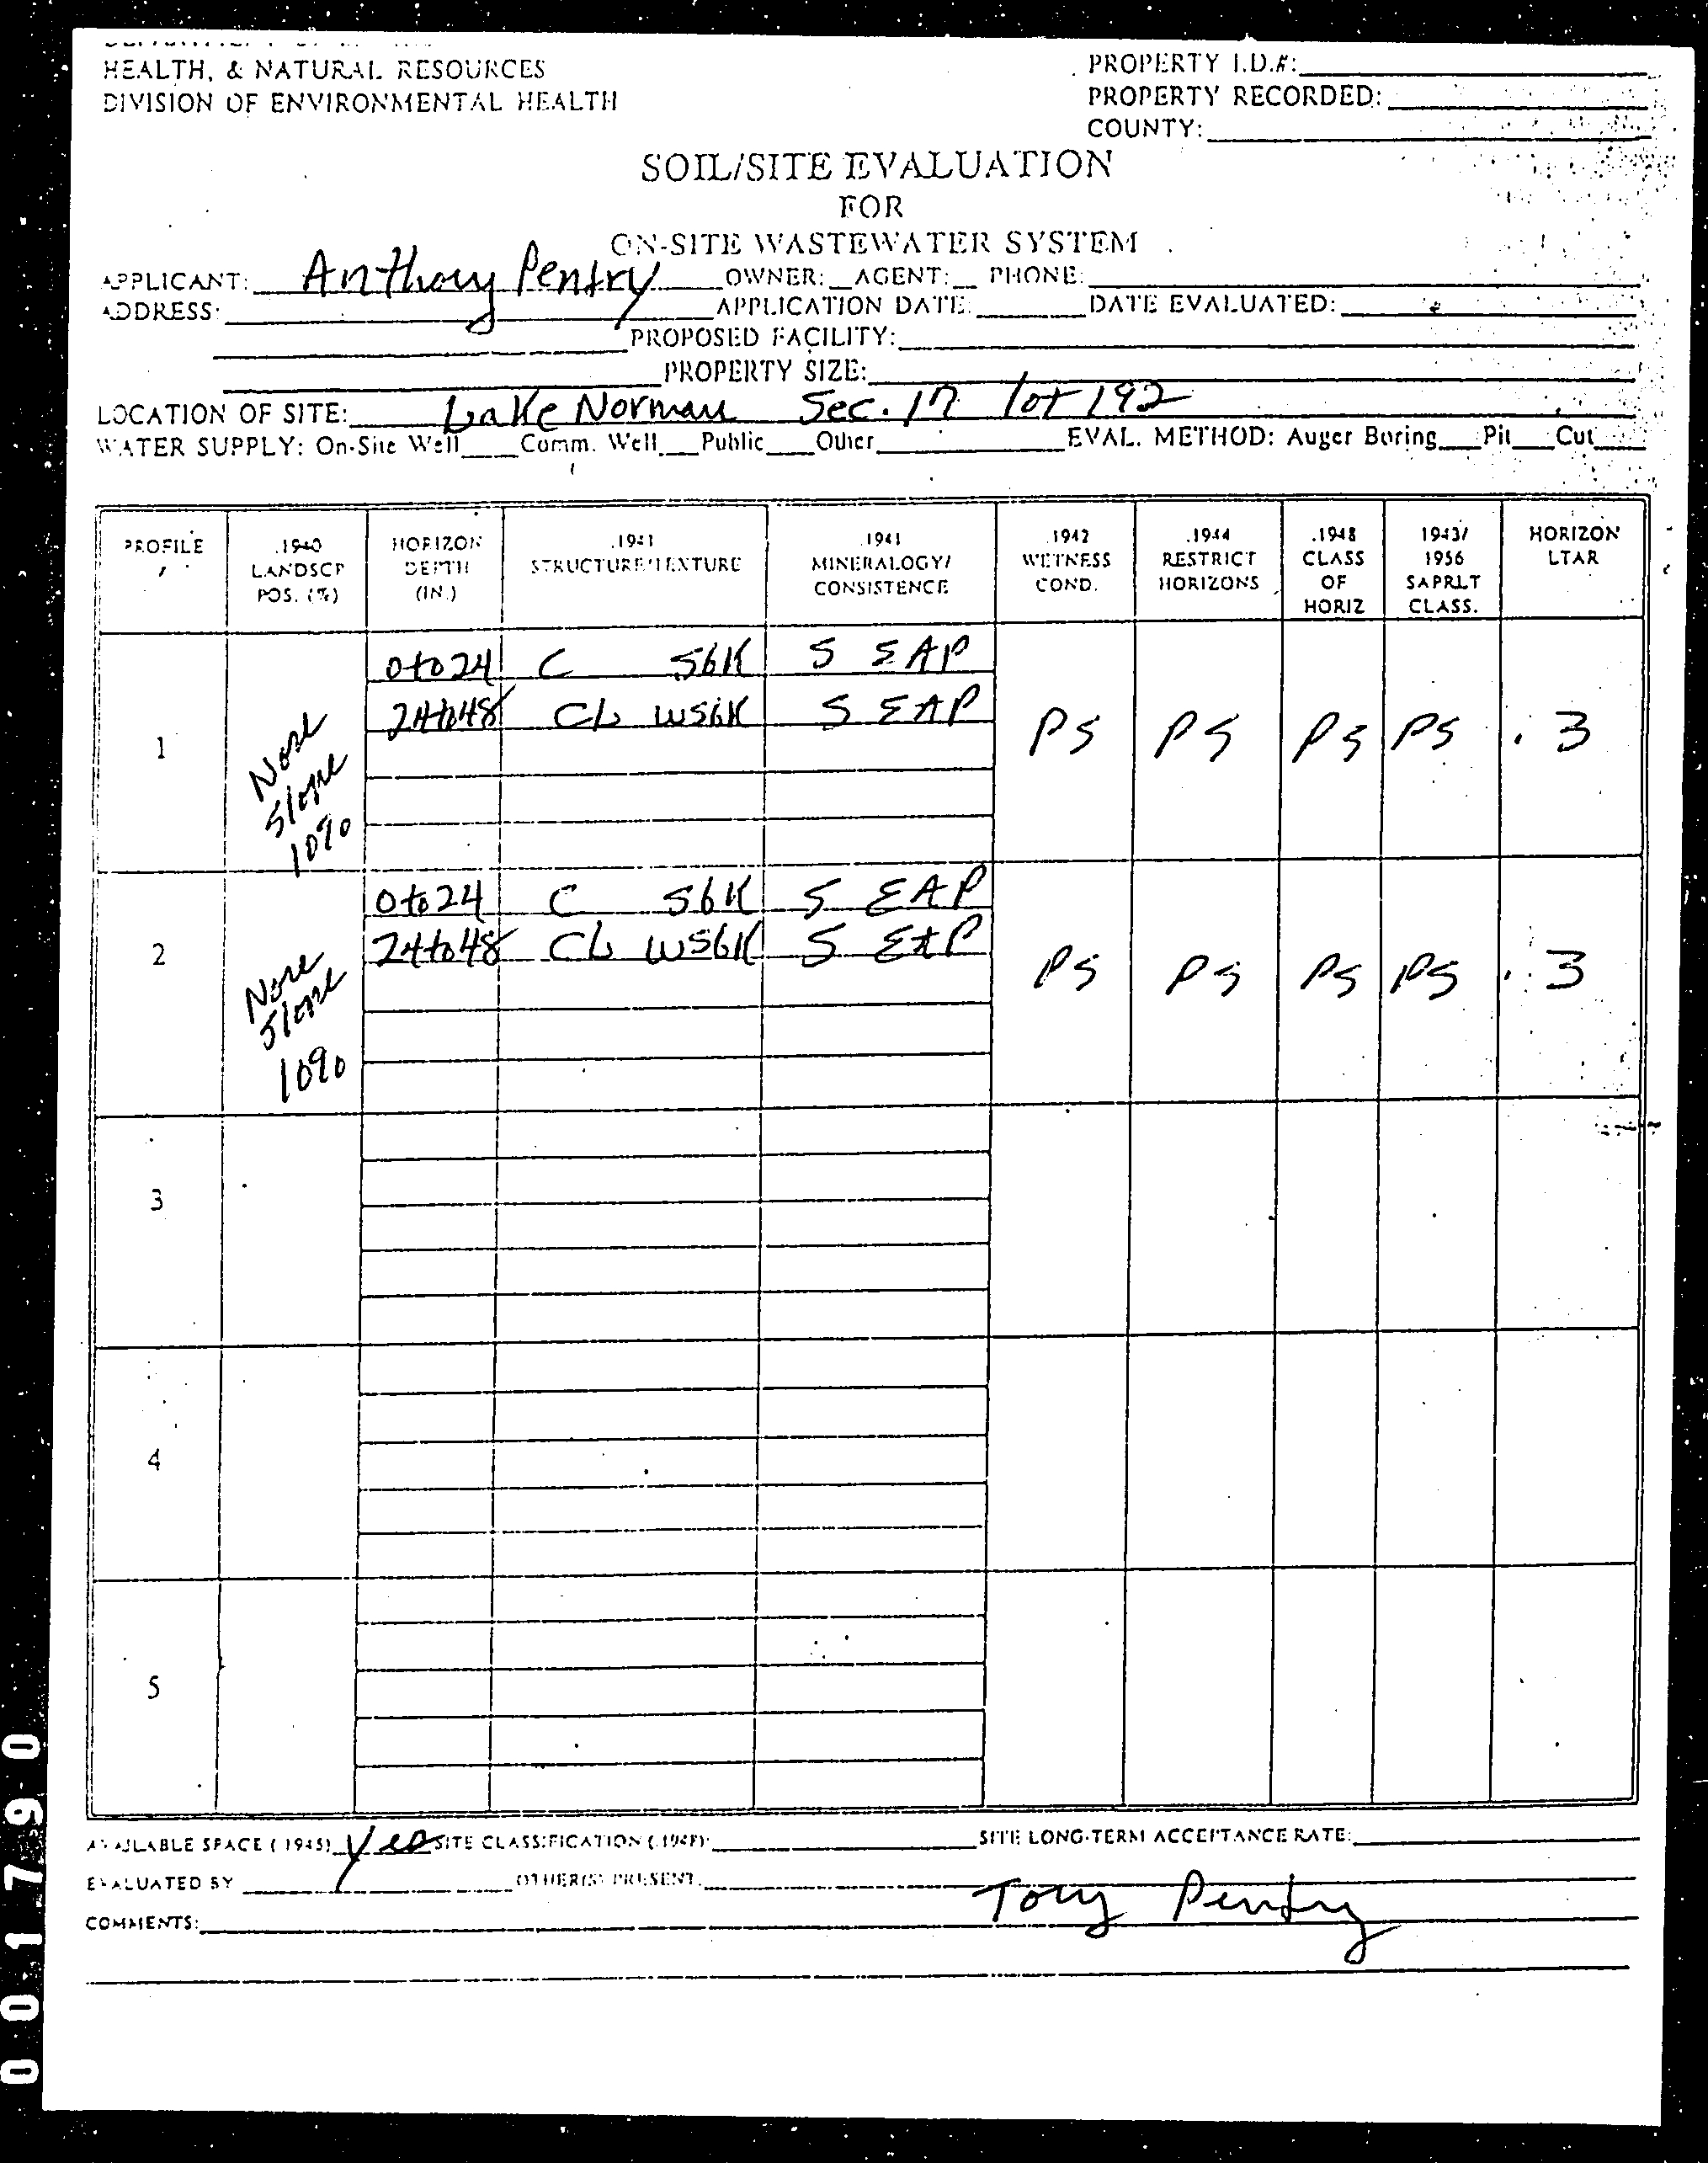 HEALTH, & NATURAL RESOURCES
DIVISION OF ENVIRONMENTAL HEALTH
PROPERTY I.D.#:
PROPERTY RECORDED:
COUNTY:
SOIL/SITE EVALUATION
FOR
ON-SITE WASTEWATER SYSTEM
APPLICANT: Anthony Pentry OWNER: AGENT: PHONE:
ADDRESS: APPLICATION DATE: DATE EVALUATED:
PROPOSED FACILITY:
PROPERTY SIZE:
LOCATION OF SITE: Lake Norman Sec. 17 lot 192
WATER SUPPLY: On-Site Well Comm. Well Public Other EVAL. METHOD: Auger Boring Pit Cut
PROFILE # .1940 LANDSCP POS. (%) HORIZON DEPTH (IN.) .1941 STRUCTURE/TEXTURE .1941 MINERALOGY/ CONSISTENCE .1942 WETNESS COND. .1944 RESTRICT HORIZONS .1948 CLASS OF HORIZ 1943/ 1956 SAPRLT CLASS. HORIZON LTAR
0 to 24 C SBK S EAP
24 to 48 CL WSBK S EAP
1 Nose Slope 10% PS PS PS PS .3
0 to 24 C SBK S EAP
24 to 48 CL WSBK S EXP
2 Nose Slope 10% PS PS PS PS .3
3
4
5
AVAILABLE SPACE (.1945) Yes SITE CLASSIFICATION (.1948): SITE LONG-TERM ACCEPTANCE RATE:
EVALUATED BY OTHER(S) PRESENT:
Tony Pentry
COMMENTS:
001790